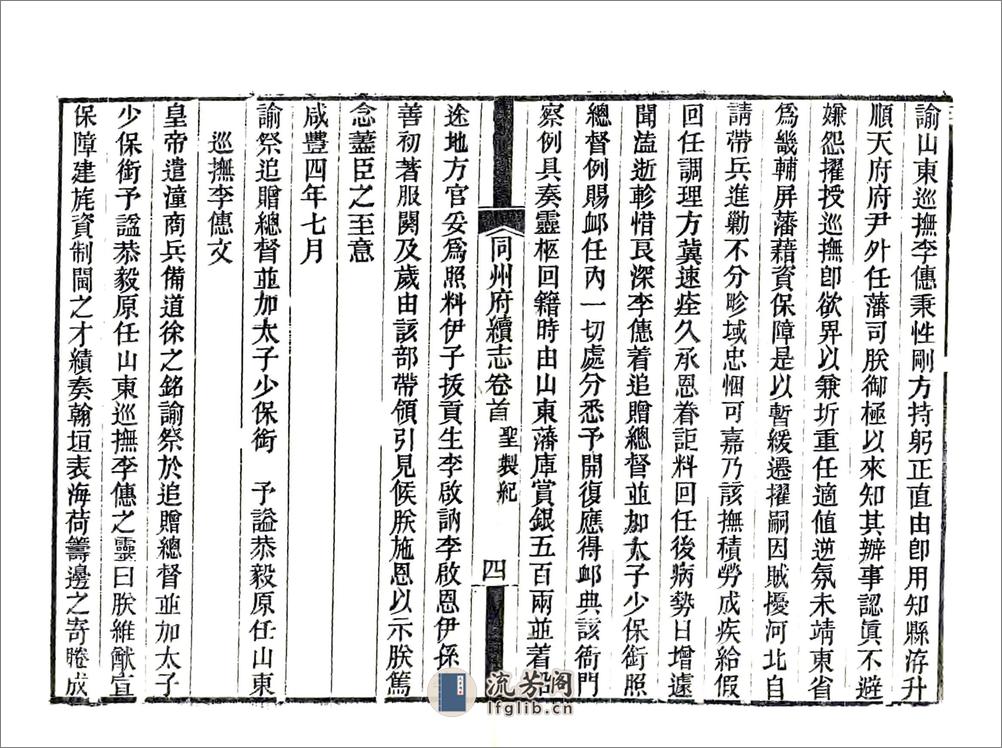 諭山東巡撫李僡秉性剛方持躬正直由卽用知縣洊升
順天府府尹外任藩司朕御極以來知其辦事認眞不避
嫌怨擢授巡撫卽欲畀以兼圻重任適值逆氛未靖東省
爲畿輔屏藩藉資保障是以暫緩遷擢嗣因賊擾河北自
請帶兵進勦不分畛域忠悃可嘉乃該撫積勞成疾給假
回任調理方冀速痊久承恩眷詎料回任後病勢日增遠
聞溘逝軫惜良深李僡着追贈總督並加太子少保銜照
總督例賜衈任內一切處分悉予開復應得衈典該衙門
察例具奏靈柩回籍時由山東藩庫賞銀五百兩並着沿
同州府續志卷首 聖製紀 四
途地方官妥爲照料伊子拔貢生李啟訥李啟恩伊孫
善初著服闋及歲由該部帶領引見候朕施恩以示朕篤
念藎臣之至意
咸豐四年七月
諭祭追贈總督並加太子少保銜 予謚恭毅原任山東
巡撫李僡文
皇帝遣潼商兵備道徐之銘諭祭於追贈總督並加太子
少保銜予謚恭毅原任山東巡撫李僡之靈曰朕維猷宣
保障建旄資制閫之才績奏翰垣表海荷籌邊之寄睠成
流芳閣
lfglib.cn